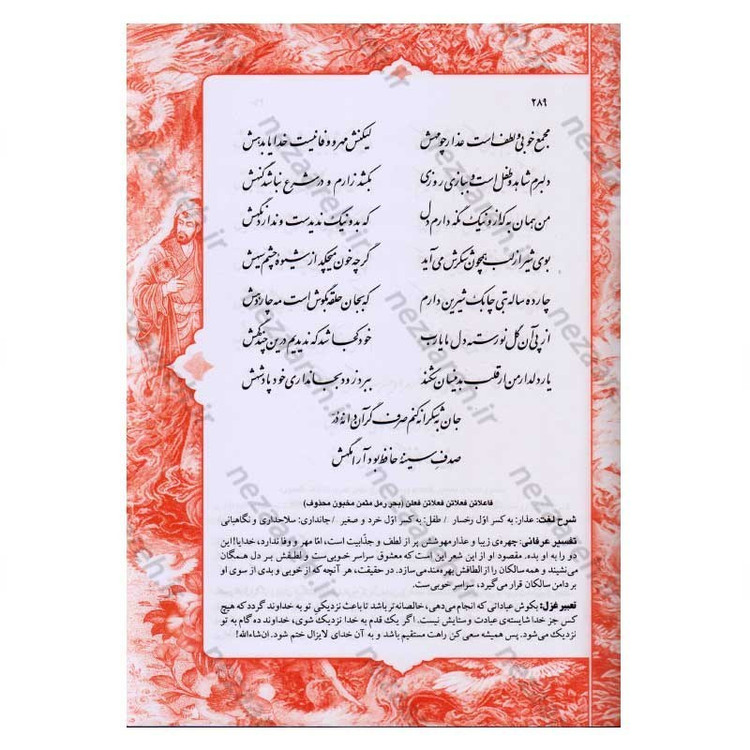 ۲۸۹
مجمع خوبی و لطف است عذار چو مهش لیکنش مهر و وفا نیست خدایا بدهش
دلبرم شاهد و طفل است و ببازی روزی بکشد زارم و در شرع نباشد گنهش
من همان به که ازو نیک نگه دارم دل که بد و نیک ندیدست و ندارد نگهش
بوی شیر از لب همچون شکرش می آید گرچه خون میچکد از شیوه چشم سیهش
چارده ساله بتی چابک شیرین دارم که بجان حلقه بگوش است مه چاردهش
از پی آن گل نورسته دل ما یارب خود کجا شد که ندیدیم درین چند گهش
یار دلدار من ار قلب بدینسان شکند ببرد زود بجانداری خود پادشهش
جان به شکرانه کنم صرف گر آن دانه در
صدف سینه حافظ بود آرامگهش
فاعلاتن فعلاتن فعلاتن فعلن (بحر رمل مثمن مخبون محذوف)
شرح لغت: عذار: به کسر اوّل رخسار / طفل: به کسر اوّل خرد و صغیر / جانداری: سلاحداری و نگاهبانی
تفسیر عرفانی: چهره‌ی زیبا و عذار مهوشش پر از لطف و جذّابیت است، امّا مهر و وفا ندارد، خدایا! این
دو را به او بده. مقصود او از این شعر این است که معشوق سراسر خوبی‌ست و لطفش بر دل همگان
می‌نشیند و همه سالکان را از الطافش بهره‌مند می‌سازد. در حقیقت، هر آنچه که از خوبی و بدی از سوی او
بر دامن سالکان قرار می‌گیرد، سراسر خوبی‌ست.
تعبیر غزل: بکوش عباداتی که انجام می‌دهی، خالصانه‌تر باشد تا باعث نزدیکی تو به خداوند گردد که هیچ
کس جز خدا شایسته‌ی عبادت و ستایش نیست. اگر یک قدم به خدا نزدیک شوی، خداوند ده گام به تو
نزدیک می‌شود. پس همیشه سعی کن راهت مستقیم باشد و به آن خدای لایزال ختم شود. ان‌شاءالله!
nezaareh.ir